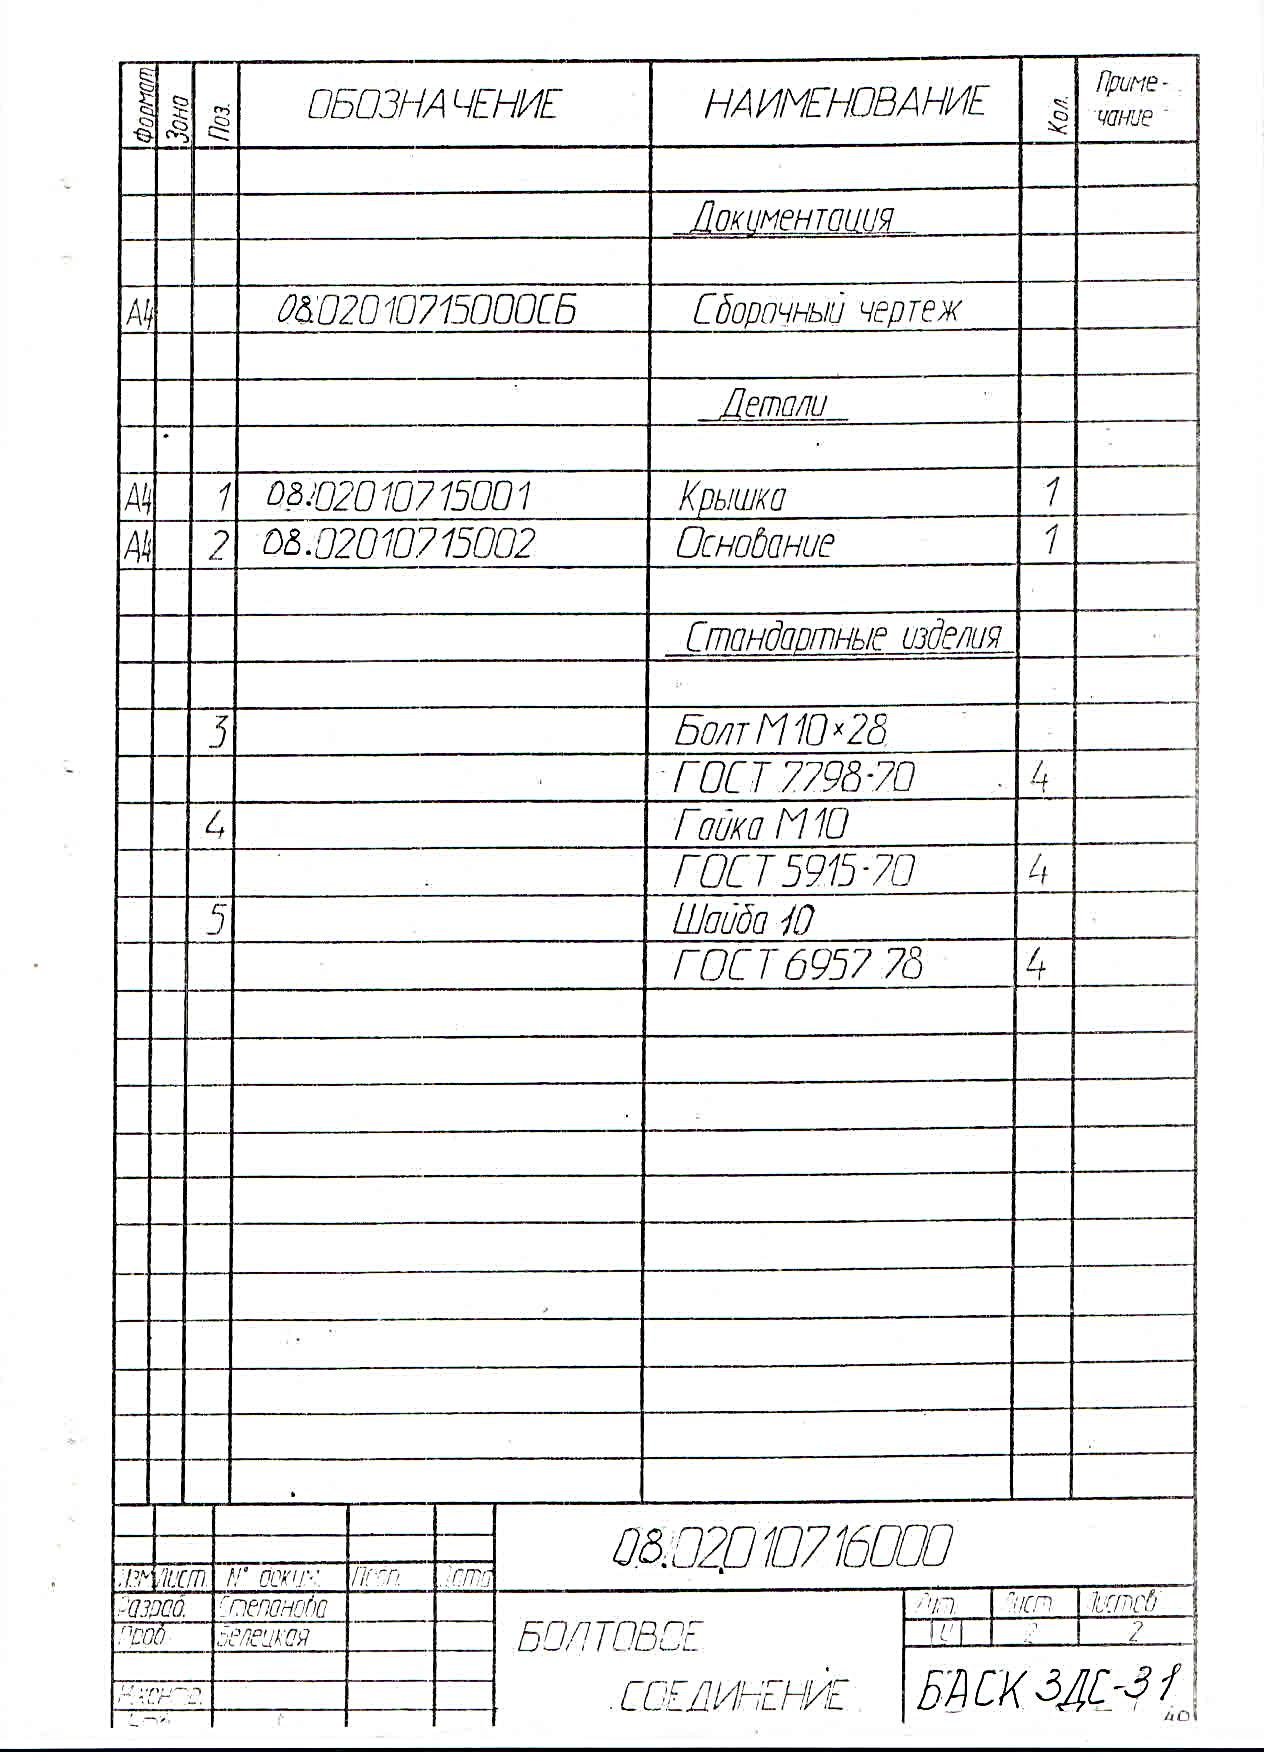 Формат Зона Поз. ОБОЗНАЧЕНИЕ НАИМЕНОВАНИЕ Кол. Приме-
чание
Документация
А4 08.02010715000СБ Сборочный чертеж
Детали
А4 1 08.02010715001 Крышка 1
А4 2 08.02010715002 Основание 1
Стандартные изделия
3 Болт М10×28
ГОСТ 7798-70 4
4 Гайка М10
ГОСТ 5915-70 4
5 Шайба 10
ГОСТ 6957 78 4
08.02010716000
Изм Лист N° докум. Подп. Дата
Разраб. Степанова
Пров. Белецкая
Н.контр.
БОЛТОВОЕ
СОЕДИНЕНИЕ
Лит. Лист Листов
2 2
БАСК 3ДС-31
40